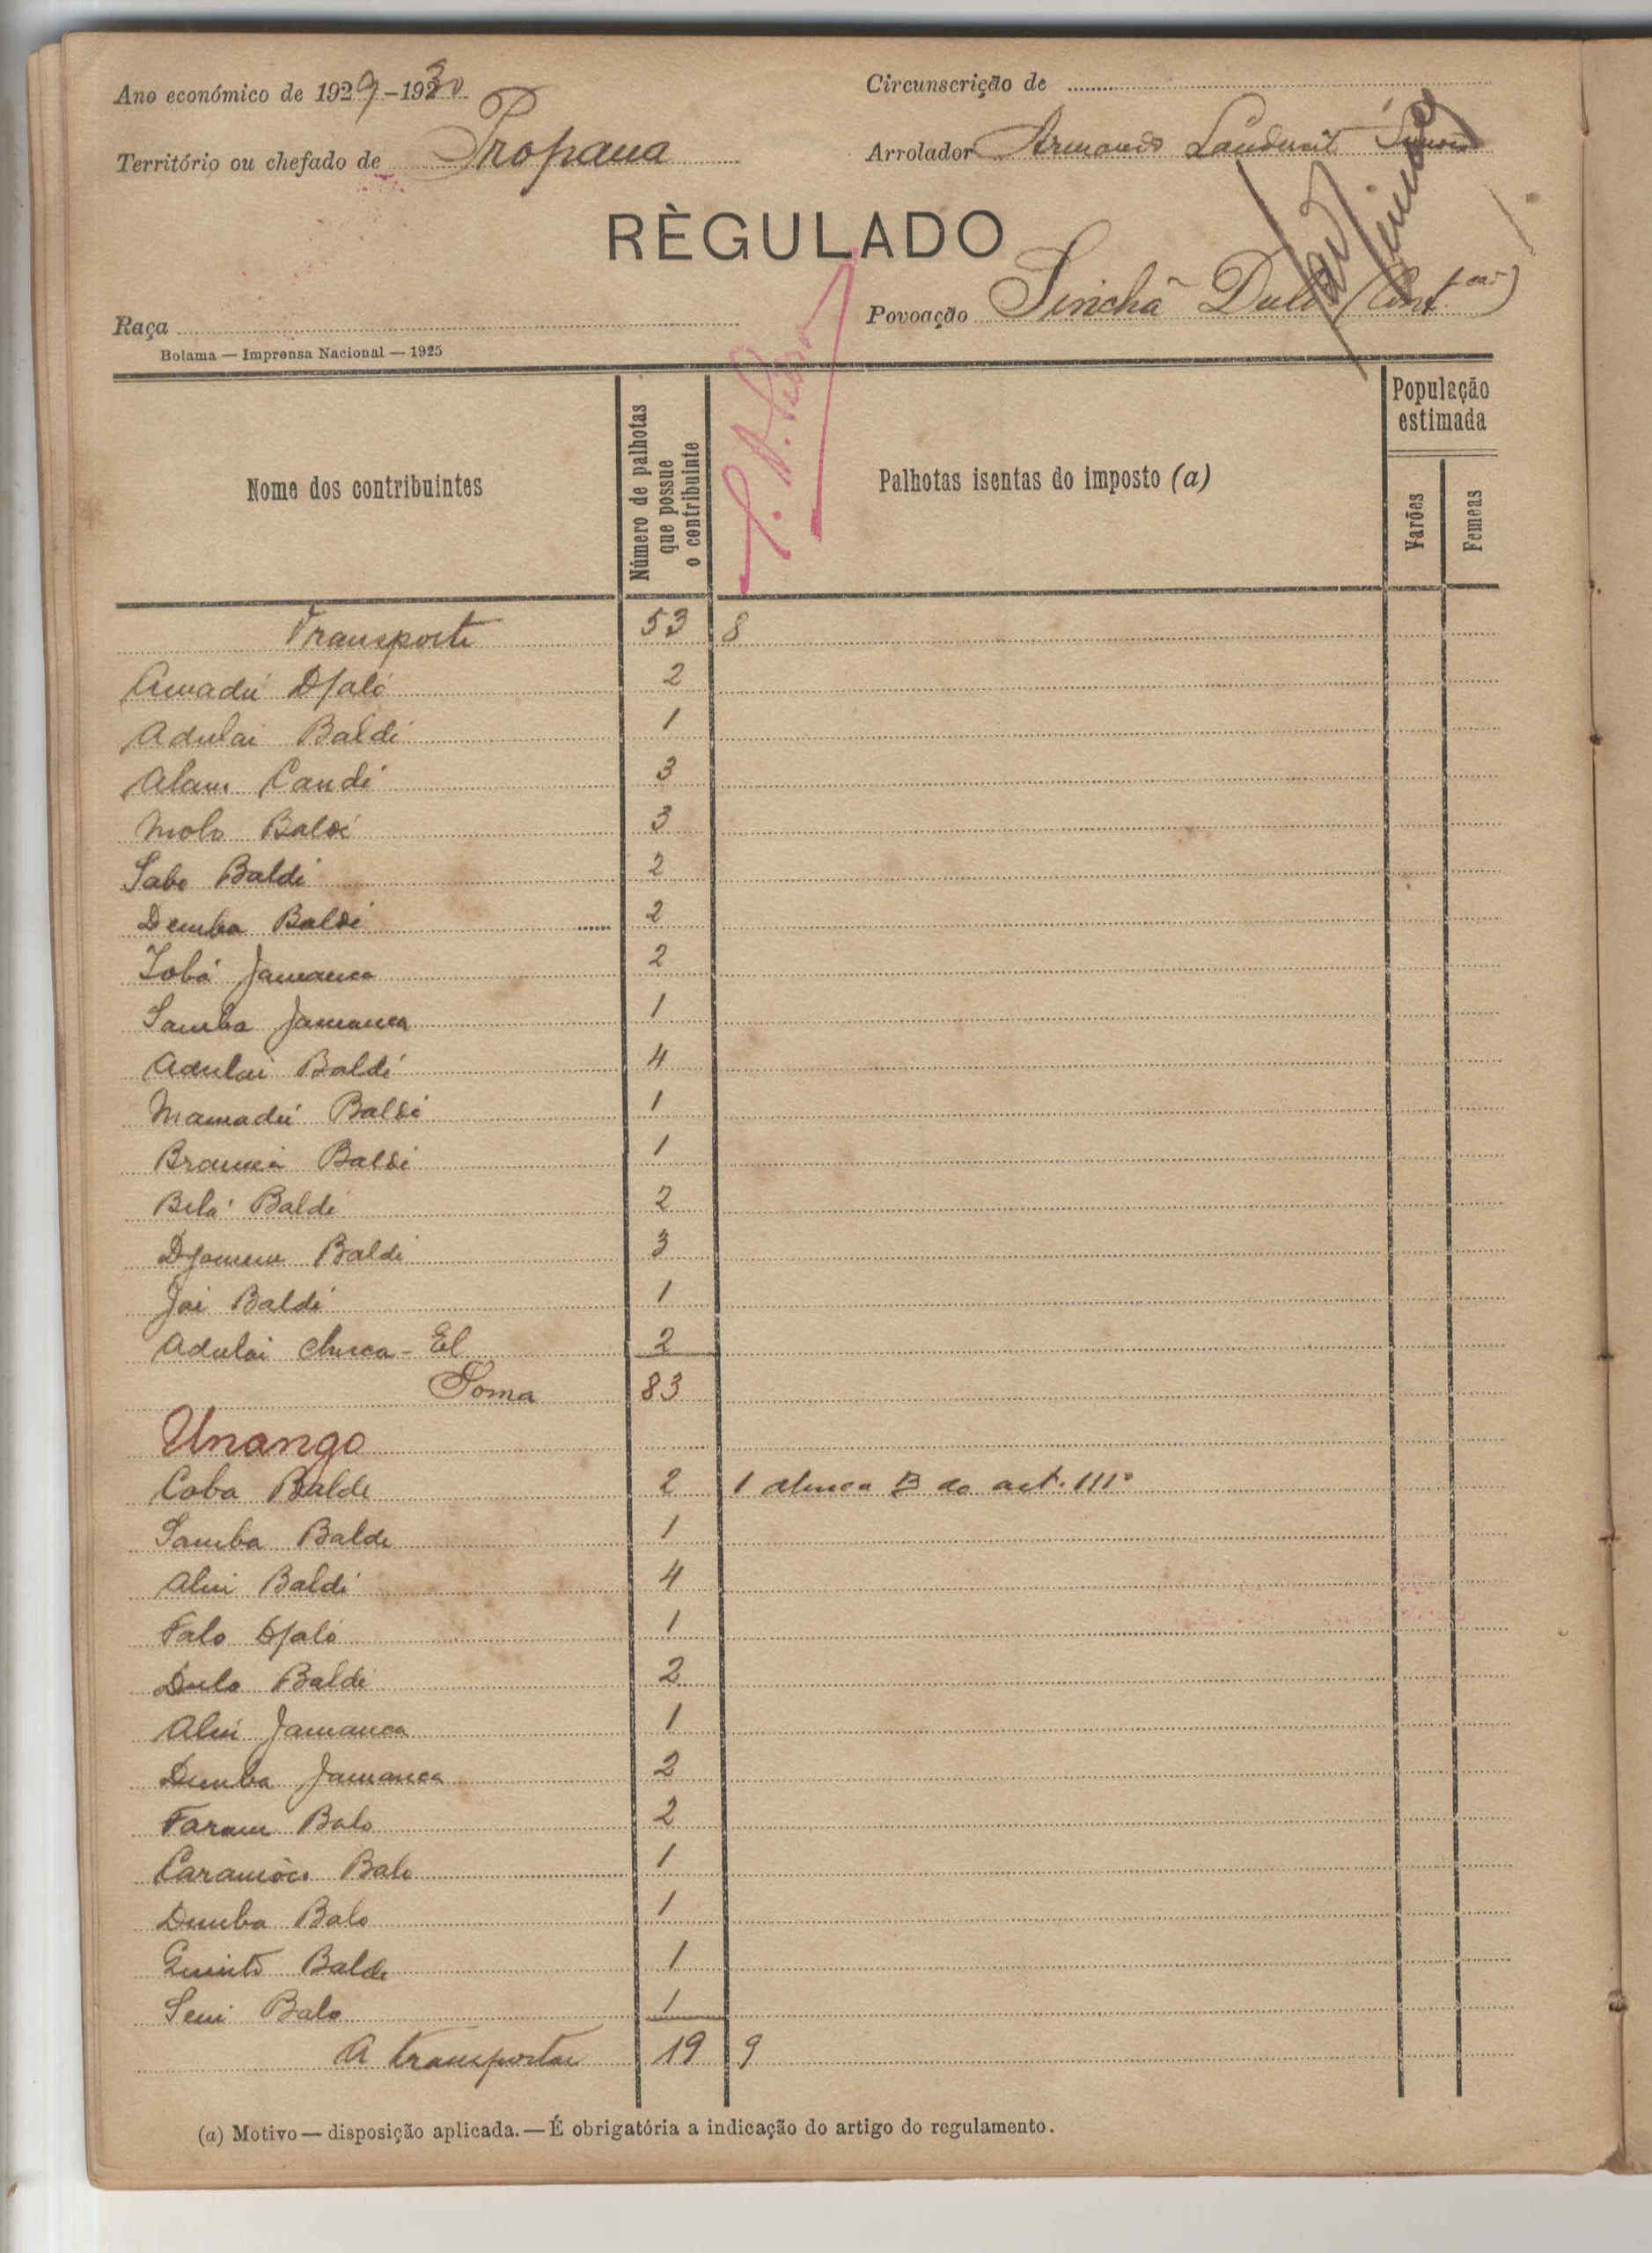 Ano económico de 1929-1930
Circunscrição de
Território ou chefado de Propana
Arrolador Armando
RÈGULADO
Raça
Povoação Sinchã Dulo (Cont.
Bolama — Imprensa Nacional — 1925
Nome dos contribuintes
Número de palhotas que possue o contribuinte
Palhotas isentas do imposto (a)
População estimada
Varões
Femeas
Transporte 53 8
Amadú Djaló 2
Adulai Baldé 1
Alam Candé 3
Molo Baldé 3
Sabo Baldé 2
Demba Baldé 2
Iobá Jamanca 2
Samba Jamanca 1
Adulai Baldé 4
Mamadú Baldé 1
Braima Baldé 1
Belá Baldé 2
Baldé 3
Jai Baldé 1
Adulai 2
Soma 83
Unango
Coba Balde 2 1 alinea B do art. 111º
Samba Balde 1
Aliu Baldé 4
Falo Djaló 1
Dulo Baldé 2
Aliu Jamanca 1
Demba Jamanca 2
Faram Balo 2
Caramòco Balo 1
Demba Balo 1
Quintó Balde 1
Seni Balo 1
A transportar 19 9
(a) Motivo — disposição aplicada. — É obrigatória a indicação do artigo do regulamento.